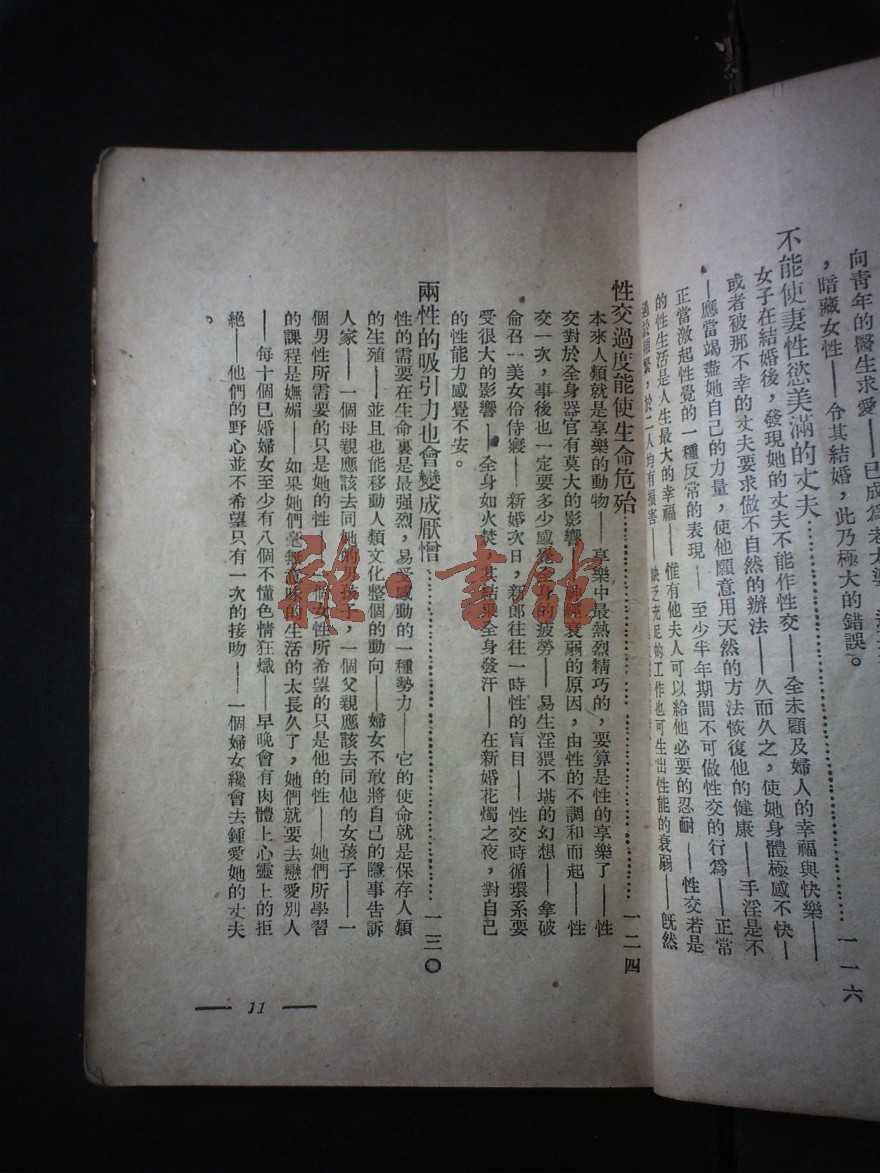 向青年的醫生求愛——已成爲老太婆
，暗藏女性——令其結婚，此乃極大的錯誤。
不能使妻性慾美滿的丈夫…………………一一六
女子在結婚後，發現她的丈夫不能作性交——全未顧及婦人的幸福與快樂——
或者被那不幸的丈夫要求做不自然的辦法——久而久之，使她身體極感不快——
——應當竭盡她自己的力量，使他願意用天然的方法恢復他的健康——手淫是不
正常激起性覺的一種反常的表現——至少半年期間不可做性交的行爲——正常
的性生活是人生最大的幸福——惟有他夫人可以給他必要的忍耐——性交若是
過於頻繁，於二人均有損害——缺乏充足的工作也可生出性能的衰弱——旣然
性交過度能使生命危殆…………………一二四
本來人類就是享樂的動物——享樂中最熱烈精巧的，要算是性的享樂了——性
交對於全身器官有莫大的影響——神經衰弱的原因，由性的不調和而起——性
交一次，事後也一定要多少感覺全身的疲勞——易生淫猥不堪的幻想——拿破
侖召一美女伶侍寢——新婚次日，新郎往往一時性的盲目——性交時循環系要
受很大的影響——全身如火焚，其結果全身發汗——在新婚花燭之夜，對自己
的性能力感覺不安。
兩性的吸引力也會變成厭憎…………………一三〇
性的需要在生命裏是最强烈，易受感動的一種勢力——它的使命就是保存人類
的生殖——並且也能移動人類文化整個的動向——婦女不敢將自己的隱事告訴
人家——一個母親應該去同她的男孩子，一個父親應該去同他的女孩子——一
個男性所需要的只是她的性——一個女性所希望的只是他的性——她們所學習
的課程是嫵媚——如果她們毫無意味的生活的太長久了，她們就要去戀愛別人
——每十個已婚婦女至少有八個不懂色情狂熾——早晚會有肉體上心靈上的拒
絕——他們的野心並不希望只有一次的接吻——一個婦女纔會去鍾愛她的丈夫
。
— 11 —
雅·書館